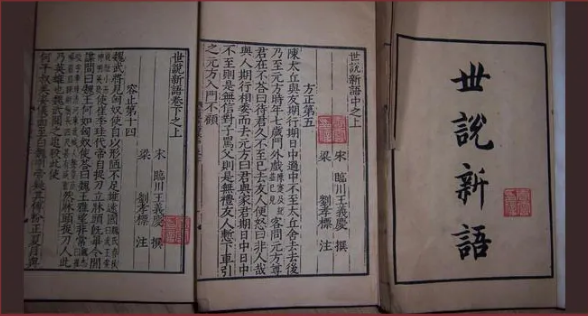 世說新語
世說新語中之上
宋 臨川王義慶 撰
梁 劉孝標 注
方正第五
陳太丘與友期行期日中過中不至太丘舍去去後
乃至元方時年七歲門外戲 客問元方尊
君在不荅曰待君久不至已去友人便怒曰非人哉
與人期行相委而去元方曰君與家君期日中日中
不至則是無信對子罵父則是無禮友人慙下車引
之元方入門不顧
世說新語卷下之上
宋 臨川王義慶 撰
梁 劉孝標 注
容止第十四
魏武將見匈奴使自以形陋不足雄遠國
使崔季珪代帝自捉刀立牀頭既畢令間
諜問曰魏王何如匈奴使荅曰魏王雅望非常
然牀頭捉刀人此
乃英雄也魏武聞之追殺此使
何平叔美姿儀面至白魏明帝疑其傅粉正夏月與